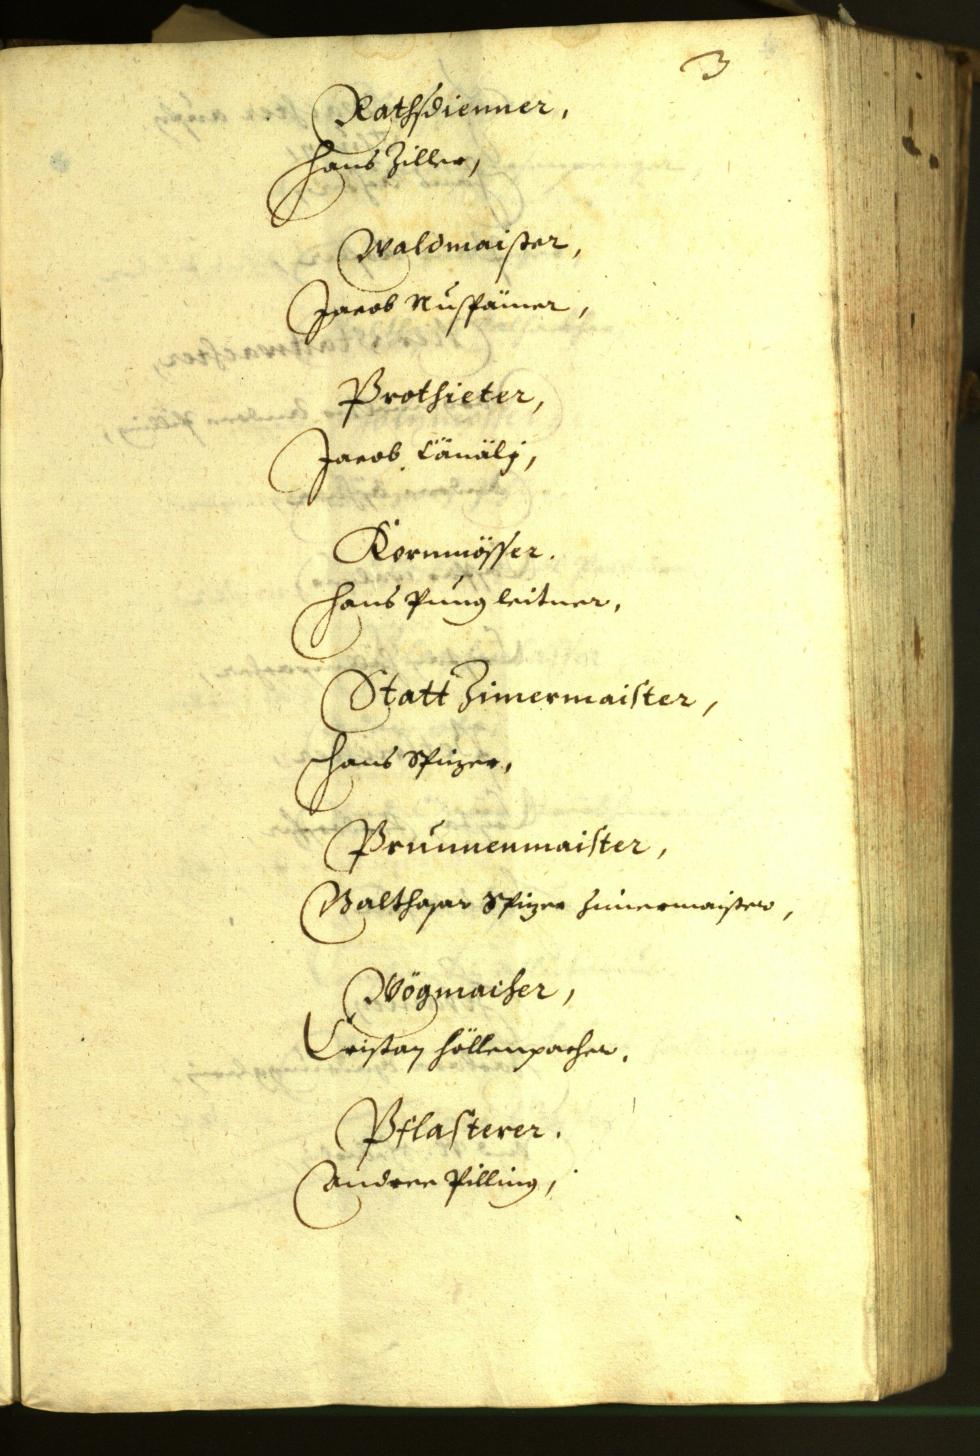 3
Rathsdienner,
Hans Ziller,
Waldmaister,
Jacob Nuspämer,
Prothieter,
Jacob Länälj,
Kornmösser.
Hans Pungleitner,
Statt Zimermaister,
Hans Spizer,
Prunnenmaister,
Balthasar Spizer Zimermaister,
Wögmacher,
Cristan Höllenpacher.
Pflasterer.
Andree Pilling,